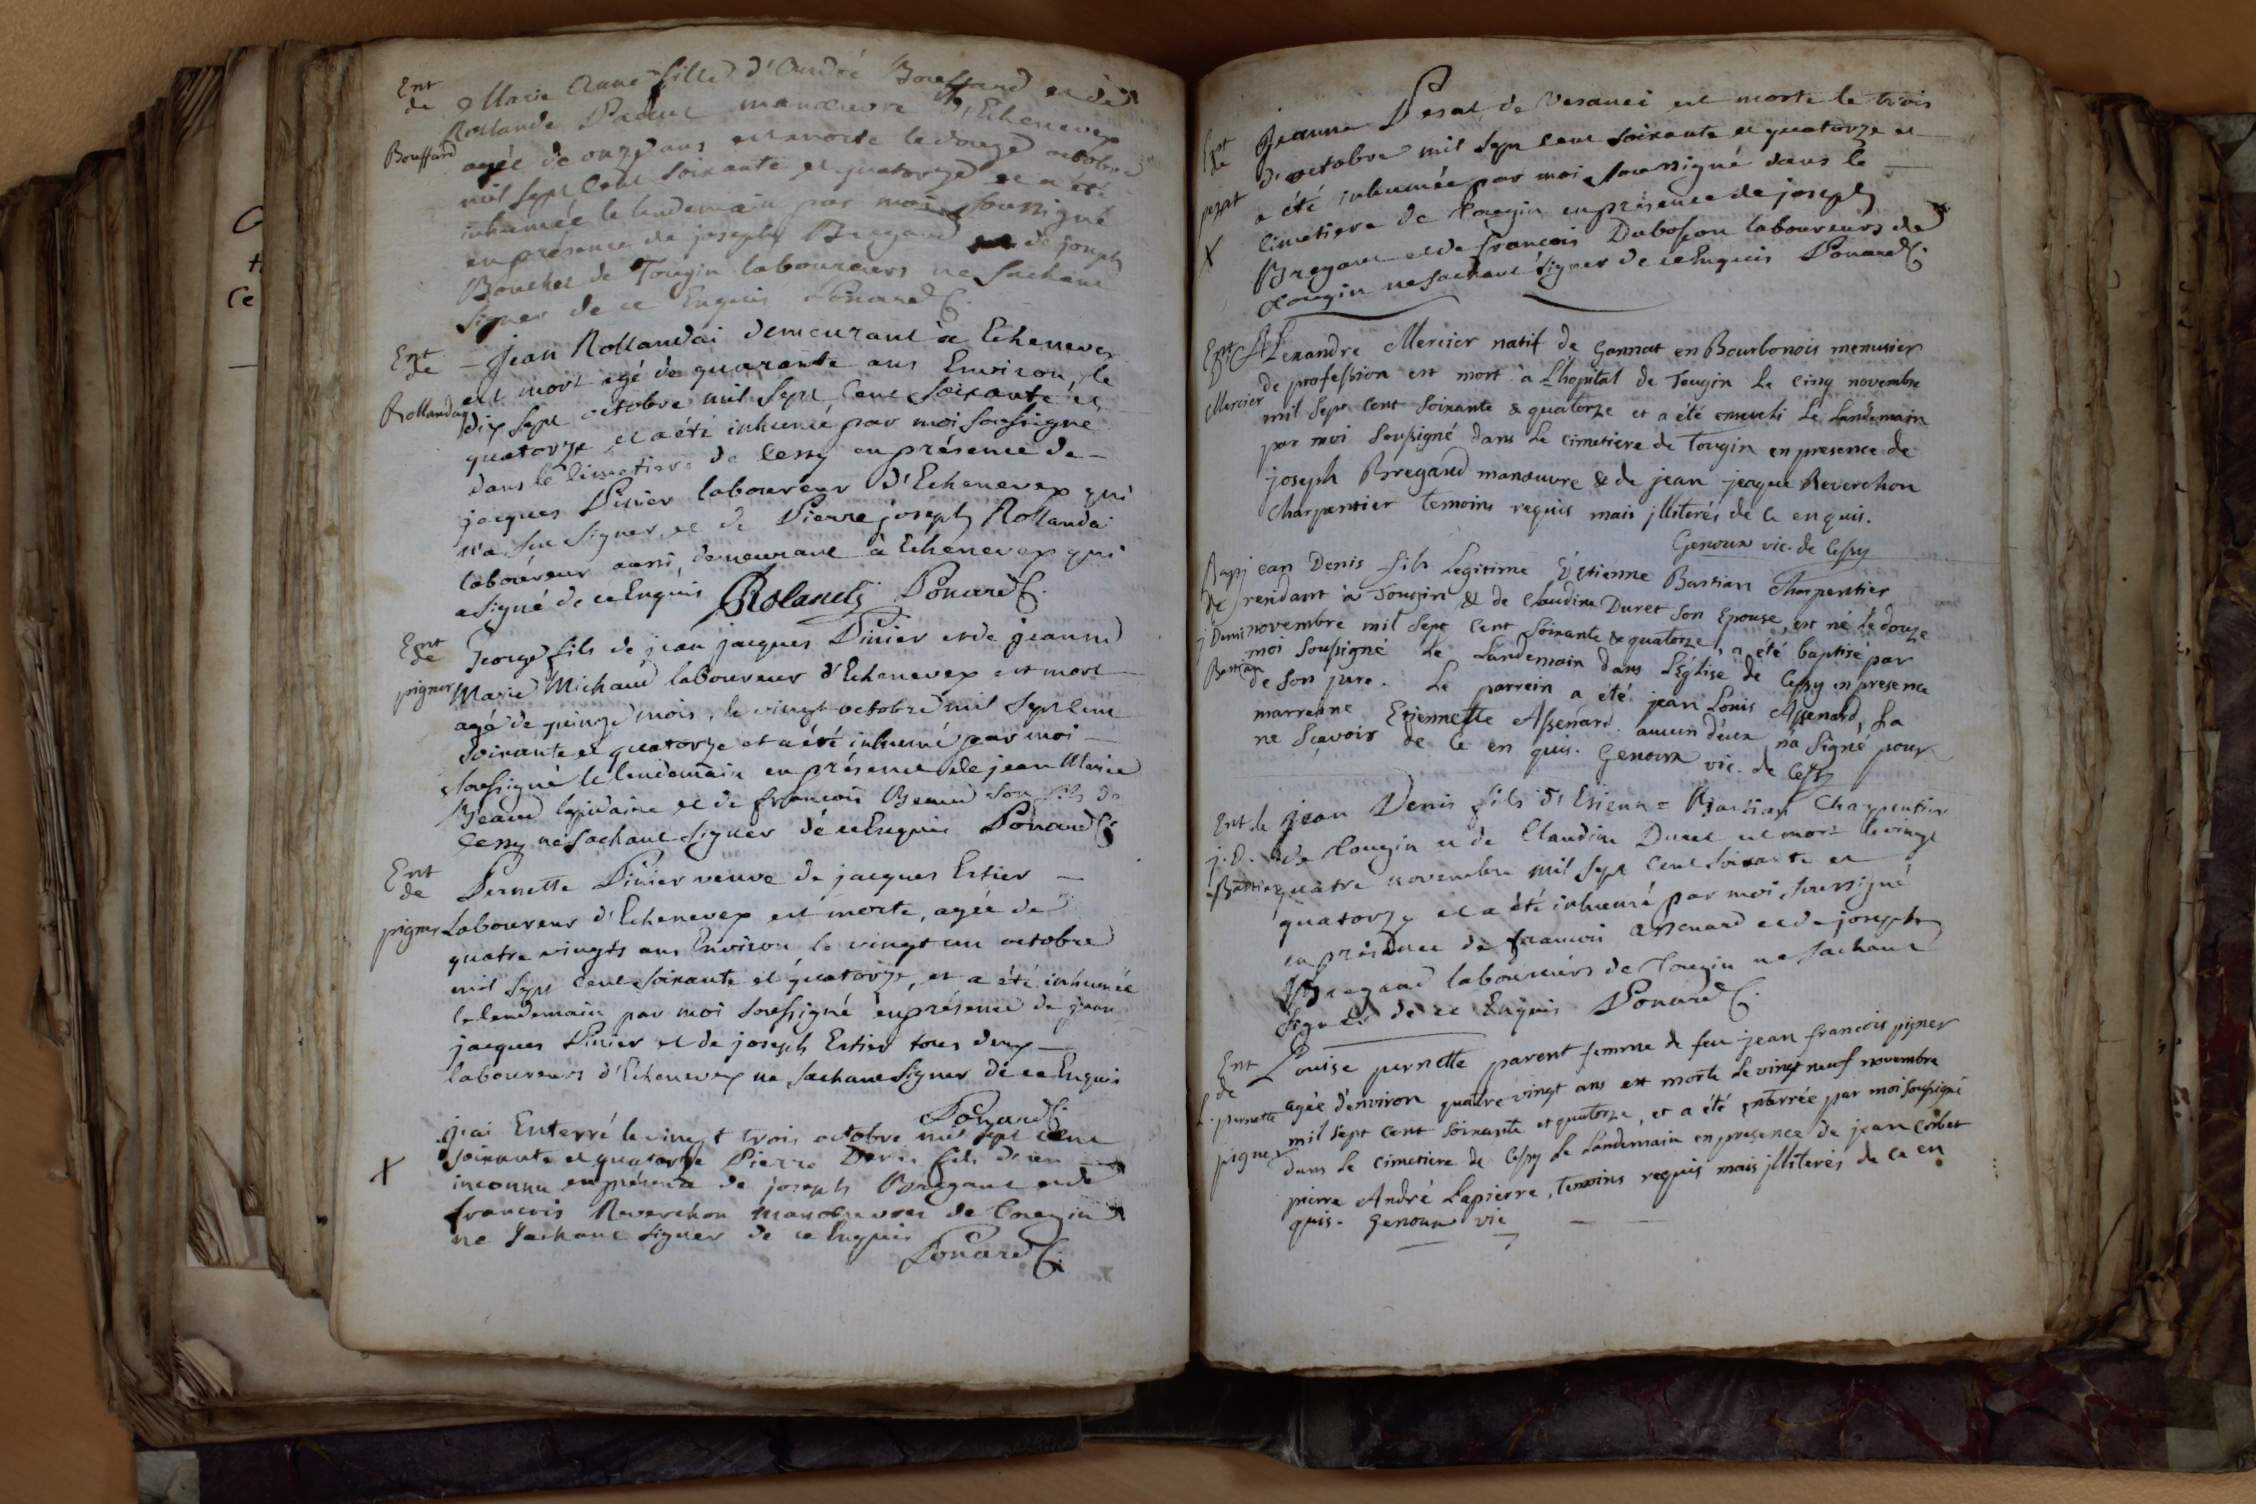 Ent
de
Bouffard
Marie Anne fille d'André Bouffard et de
Rollande manoeuvre d'Echenevex
agée de onze ans est morte le douze octobre
mil sept cent soixante et quatorze et a été
inhumée le lendemain par moi soussigné
en présence de joseph Bregand de joseph
Bouchet de Tougin laboureurs ne sachant
signer de ce Enquis Ponard C.
Ent
de
Rollanday
jean Rollandai demeurant à Echenevex
est mort agé de quarante ans Environ, le
dix sept octobre mil sept cent soixante et
quatorze et a été inhumé par moi soussigné
dans le cimetiere de Cessy en présence de
jacques Pinier laboureur d'Echenevex qui
n'a su signer, et de Pierre joseph Rollandai
laboureur aussi, demeurant à Echenevex qui
a signé de ce Enquis Rolandi Ponard C.
Ent
de
pigner
George fils de jean jacques Pinier et de jeanne
Marie Michaud laboureur d'Echenevex est mort
agé de quinze mois, le vingt octobre mil sept cent
soixante et quatorze et a été inhumé par moi
soussigné le lendemain en présence de jean Marie
Beaud lapidaire et de françois Beaud son fils de
Cessy ne sachant signer de ce Enquis Ponard C.
Ent
de
pigner
Pernette Pinier veuve de jacques Estier
Laboureur d'Echenevex est morte, agée de
quatre vingts ans Environ le vingt un octobre
mil sept cent soixante et quatorze, et a été inhumée
le lendemain par moi soussigné en présence de jean
jacques Pinier et de joseph Estier tous deux
laboureurs d'Echenevex ne sachant signer de ce Enquis
Ponard C.
X
jai Enterré le vingt trois octobre mil sept cent
soixante et quatorze Pierre Denis fils d'un
inconnu en présence de joseph Bregand et de
françois Reverchon manoeuvres de Tougin
ne sachant signer de ce Enquis
Ponard C.
Ent
de
pezat
X
Jeanne Pesat de Vesanci est morte le trois
d'octobre mil sept cent soixante et quatorze et
a été inhumée par moi soussigné dans le
cimetiere de Tougin en présence de joseph
Bregand et de françois Dubosson laboureurs de
Tougin ne sachant signer de ce Enquis Ponard C.
Ent
Mercier
Alexandre Mercier natif de Gannat en Bourbonois menusier
de profession est mort à L'hopital de Tougin Le cinq novembre
mil sept cent soixante & quatorze et a été enseveli Le Landemain
par moi Soussigné dans Le cimetiere de Tougin en presence de
joseph Bregand manœuvre & de jean jacque Reverchon
Charpentier temoins requis mais jlliterés de Ce enquis.
Genoux vic. de Cessy
Bap
de
j Denis
Bastian
jean Denis fils Legitime d'Etienne Bastian Charpentier
rendant à Tougin & de Claudine Duret son Epouse, est né Le douze
novembre mil sept cent soixante & quatorze, a été baptisé par
moi soussigné Le Landemain dans L'église de Cessy en presence
de son pere. Le parrein a été jean Louis Assenard, La
marreine Etiennette Assenard. aucun d'eux n'a signé pour
ne sçavoir de Ce en quis. Genoux vic. de Cessy
Ent de
j. D.
Bastian
jean Denis fils d'Etienne Bastian Charpentier
de Tougin et de Claudine Duret est mort le vingt
quatre novembre mil sept cent soixante et
quatorze et a été inhumé par moi, soussigné
en présence de françois assenard et de joseph
Bregand laboureurs de Tougin ne sachant
signer de ce Enquis Ponard C.
Ent
de
L. pernette
pigner
Louise pernette parent femme de feu jean francois pigner
agée d'environ quatre vingt ans est morte Le vingt neuf novembre
mil sept cent soixante et quatorze, et a été enterrée par moi soussigné
dans Le cimetiere de Cessy Le Landemain en presence de jean Corbet
pierre André Lapierre, temoins requis mais jlliterés de Ce en
quis. Genoux vic